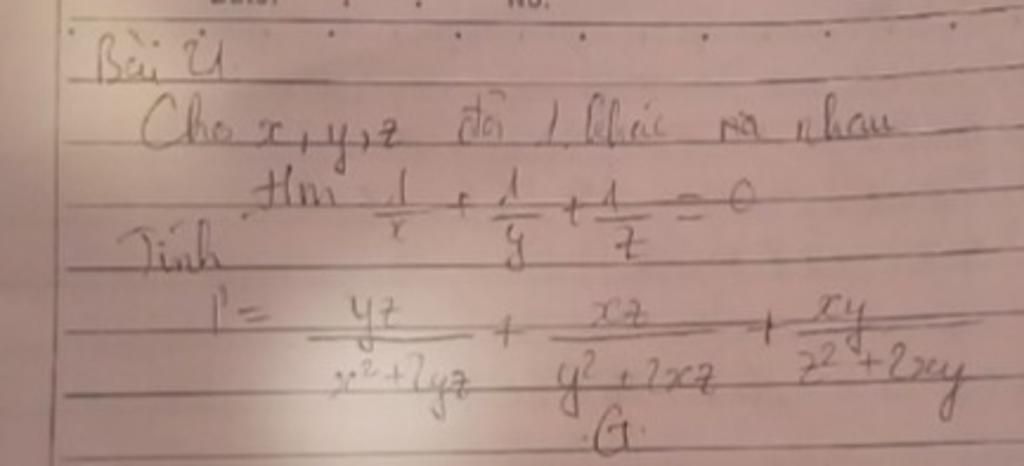 Bài 21
Cho x, y, z đôi 1 khác nhau
t/m 1/x + 1/y + 1/z = 0
Tính
P = yz/(x²+2yz) + xz/(y²+2xz) + xy/(z²+2xy)
G